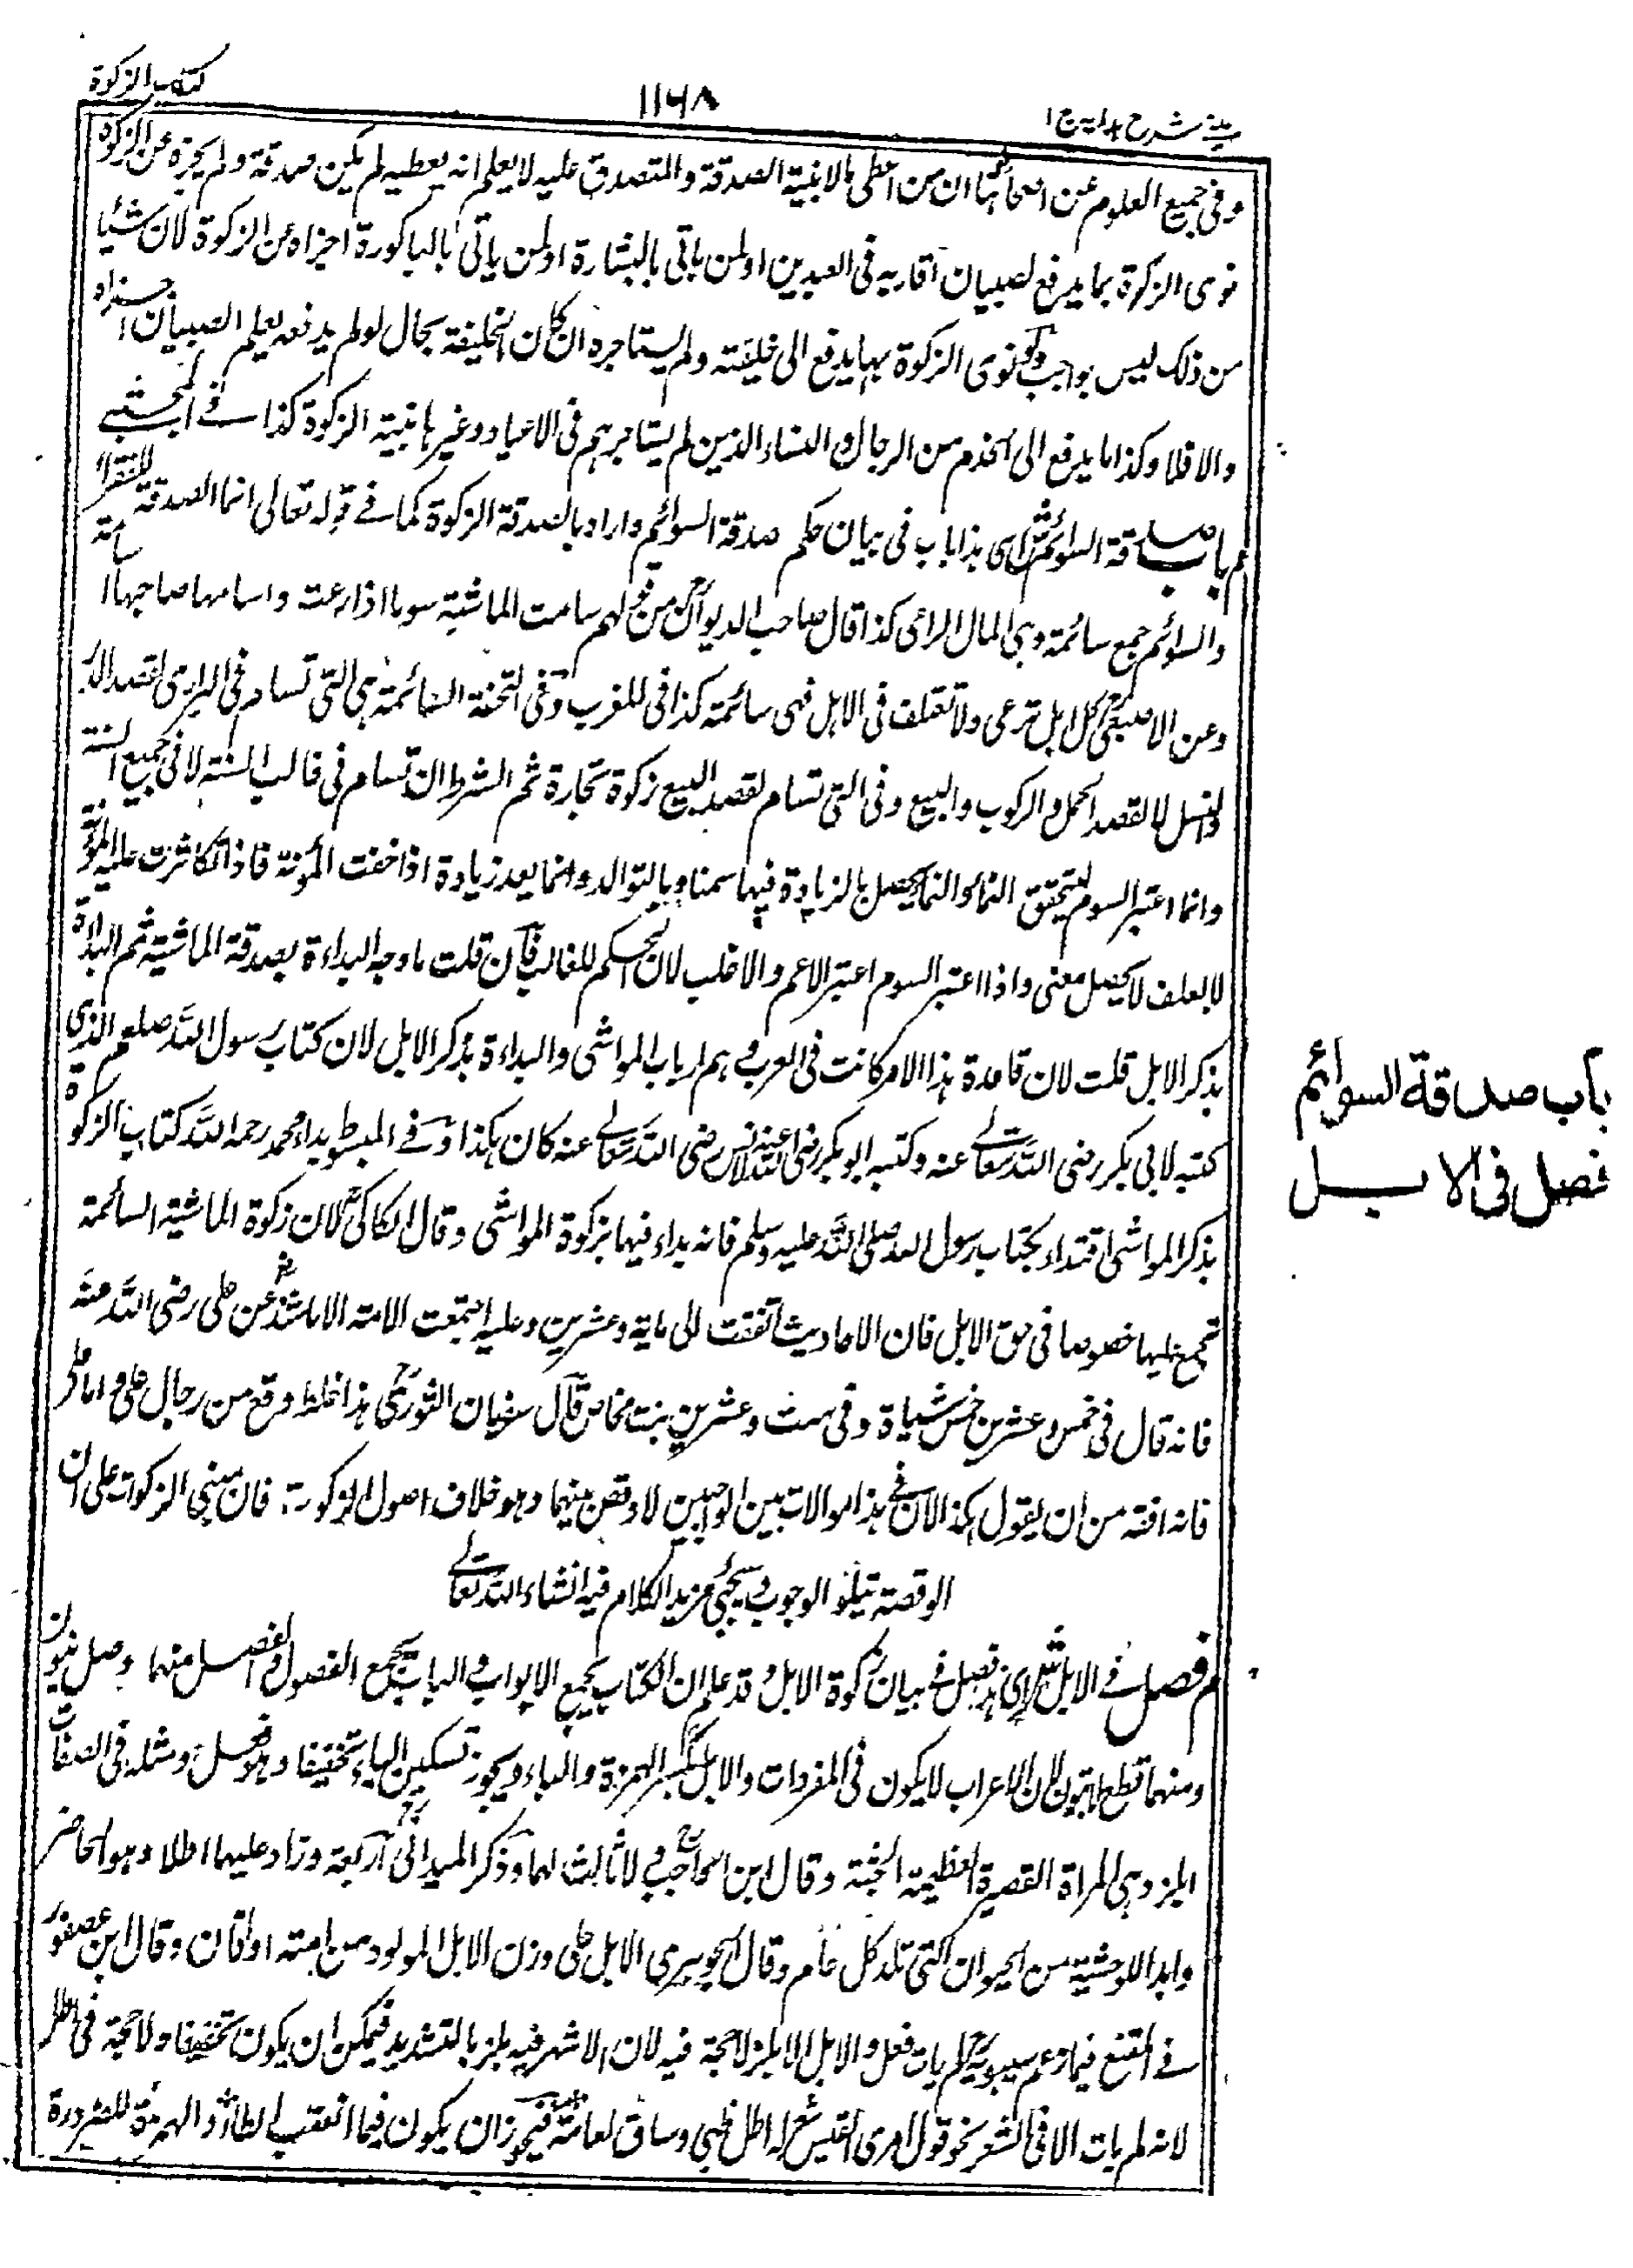 كتاب الزكوة
١١٦٨
عينى شرح هدايه ج ١
وفى جميع العلوم عن ان من اعطى مالا بنية الصدقة والمتصدق عليه لا يعلم انه يعطيه لم يكن صدقة ولم يجزه عن الزكوة
نوى الزكوة بما يدفع لصبيان اقاربه فى العيدين او لمن ياتى بالبشارة او لمن ياتى بالباكورة اجزاه عن الزكوة لان شيئا
من ذلك ليس بواجب ولو نوى الزكوة بما يدفع الى خليفته ولم يستاجره ان كان الخليفة بحال لو لم يدفعه يعلم الصبيان اجزاه
والا فلا وكذا ما يدفع الى الخدم من الرجال والنساء الذين لم يستاجرهم فى الاعياد وغيرها بنية الزكوة كذا فى المجتبى
م باب صدقة السوائم ش اى هذا باب فى بيان حكم صدقة السوائم واراد بالصدقة الزكوة كما فى قوله تعالى انما الصدقة للفقراء
والسوائم جمع سائمة وهى المال الراعى كذا قال صاحب الديوان من قولهم سامت الماشية سوما اذا رعت واسامها صاحبها اسامة
وعن الاصمعى كل ابل ترعى ولا تعلف فى الابل فهى سائمة كذا فى المغرب وفى التحفة السائمة هى التى تسام فى البرارى لقصد الدر
والنسل لا لقصد الحمل والركوب والبيع وفى التى تسام لقصد البيع زكوة تجارة ثم الشرط ان تسام فى غالب السنة لا فى جميع السنة
وانما اعتبر السوم ليتحقق النماء والنما يحصل بالزيادة فيها سمنا وبالتوالد وانما يعد زيادة اذا خفت المؤنة فاذا تكاثرت عليه المؤنة
لا بعلف لا يحصل معنى واذا اعتبر السوم اعتبر الاعم والاغلب لان الحكم للغالب فان قلت ما وجه البداءة بصدقة الماشية ثم البداءة
بذكر الابل قلت لان قاعدة هذا الامر كانت فى العرب وهم ارباب المواشى والبداءة بذكر الابل لان كتاب رسول الله صلعم الذى
كتبه لابى بكر رضى الله تعالى عنه وكتبه ابو بكر رضى الله عنه لانس رضى الله تعالى عنه كان هكذا وفى المبسوط بداء محمد رحمه الله كتاب الزكوة
بذكر المواشى اقتداء بكتاب رسول الله صلى الله عليه وسلم فانه بداء فيها بزكوة المواشى وقال الكاكى لان زكوة الماشية السائمة
تجمع عليها خصوصا فى حق الابل فان الاحاديث اتفقت الى ماية وعشرين وعليه اجتمعت الامة الا ما شذ عن على رضى الله عنه
فانه قال فى خمس وعشرين خمس شياة وفى ست وعشرين بنت مخاض قال سفيان الثورى هذا غلط وقع من رجال على و اما على
فانه افقه من ان يقول هكذا لان فى هذا موالات بين الواجبين لا وقص بينهما وهو خلاف اصول الزكوة فان مبنى الزكوات على ان
الوقصة تتلو الوجوب و سيجئ مزيد الكلام فيه انشاء الله تعالى
م فصل فى الابل ش اى هذا فصل فى بيان زكوة الابل وقد علم ان الكتاب يجمع الابواب والباب يجمع الفصول والفصل منهما وصل ينون
ومنهما قطع لا ينون لان الاعراب لا يكون فى المفردات والابل بكسر الهمزة والباء ويجوز تسكين الباء تخفيفا وهو فعل ومثله فى الصفات
ابلز وهى المراة القصيرة العظيمة الجثة وقال ابن الحاجب ولا ثالث لهما وذكر الميدانى اربعة وزاد عليهما اطلا وهو الخاضر
وابدا للوحشية من الحيوان التى تلد كل عام وقال الجوهرى الابل على وزن الابل المولود من امته او اتان وقال ابن عصفور
فى المقنع فيما زعم سيبويه لم يات فعل والابل الا بلز لا حجة فيه لان الاشهر فيه بلز بالتشديد فيمكن ان يكون تخفيفا ولا حجة فى اطل
لانه لم يات الا فى الشعر نحو قول امرى القيس شعر له اطل ظبى وساق نعامة فيجوز ان يكون فيما الهمزة للضرورة
باب صدقة السوائم
فصل فى الابل